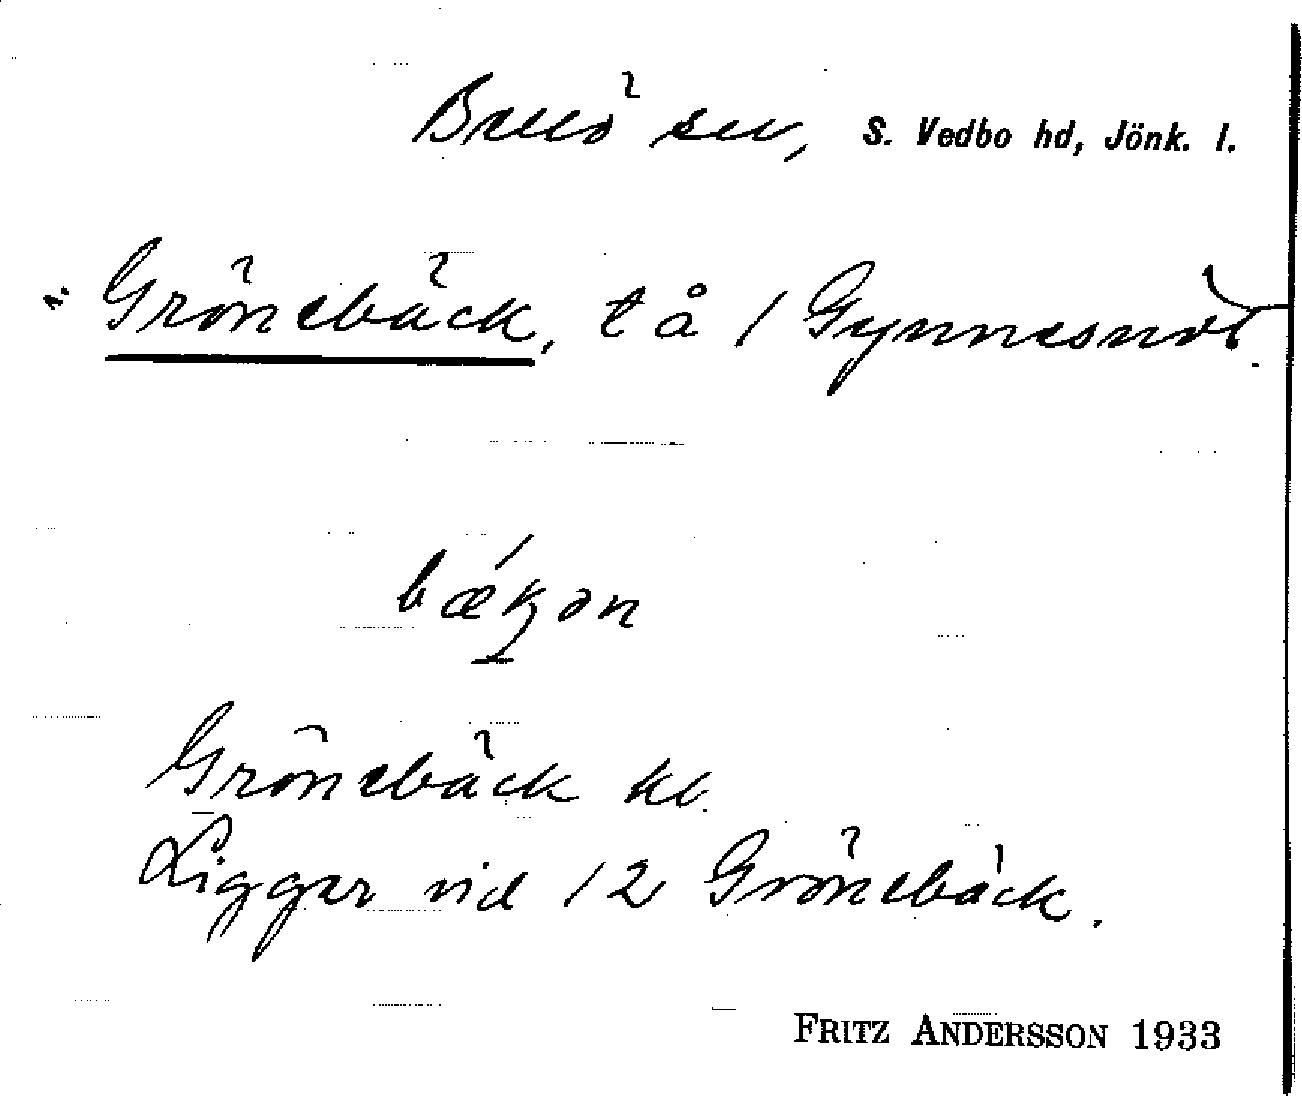 Bredö sn, S. Vedbo hd, Jönk. l.
1. Grönebäck, t å / Gynnesmöl.
bækən
Grönebäck kb.
Ligger vid 12 Grönebäck.
FRITZ ANDERSSON 1933